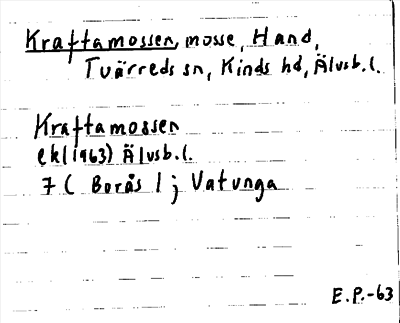 Kraftamossen, mosse, Hand,
Tvärreds sn, Kinds hd, Älvsb.l.
Kraftamossen
ek(1963) Älvsb.l.
7 C Borås ; Vatunga
E.P.-63